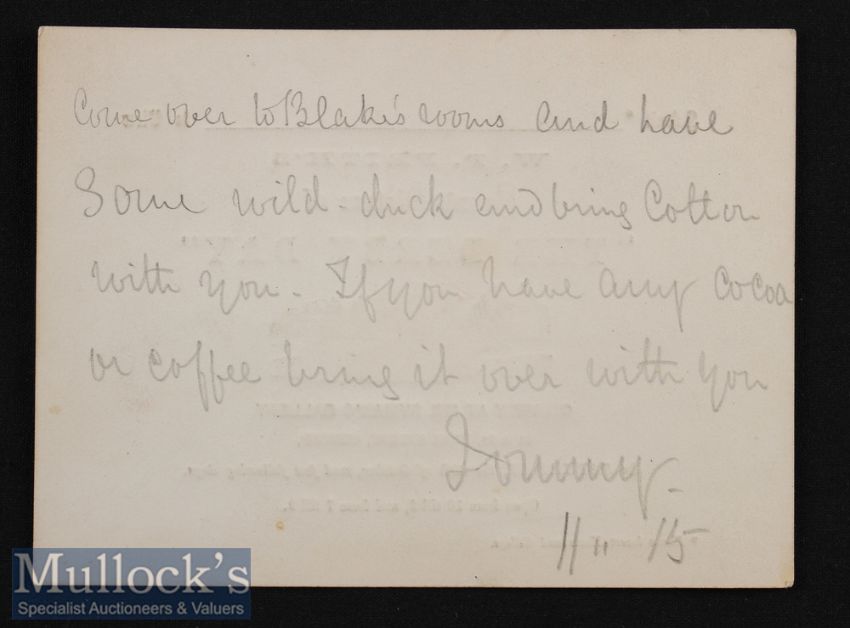 Come over to Blake's rooms and have
Some wild-duck and bring Cotton
with you. If you have any Cocoa
or coffee bring it over with you
Tommy.
11 " 15
Mullock's
Specialist Auctioneers & Valuers